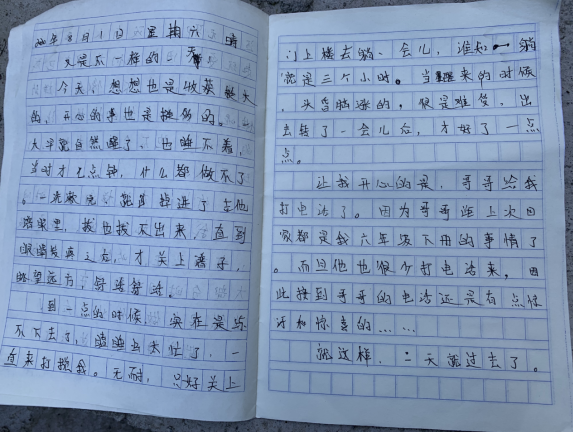 年8月1日 星期六 晴
又是不一样的一天
今天,想想也是收获
的,开心的事也是挺多的。
大早就自然醒了,也睡不着,
当时才七点钟,什么都做不了
。一
里,拔也拔不出来,直到
眼睛发 之后,才关上
眺望远方,舒
到一点的时候 实在是
不下去了,瞌睡 来 了,一
直来打扰我。无耐,只好关上
门上楼去躺一会儿,谁知一躺
就是三个小时。当醒来的时候
,头昏脑涨的,很是难受,出
去转了一会儿后,才好了一点
点。
让我开心的是,哥哥给我
打电话了。因为哥哥 上次回
家都是我六年级下册的事情了
。而且他也很少打电话来,因
此接到哥哥的电话还是有点惊
讶和惊喜的……
就这样,一天就过去了。